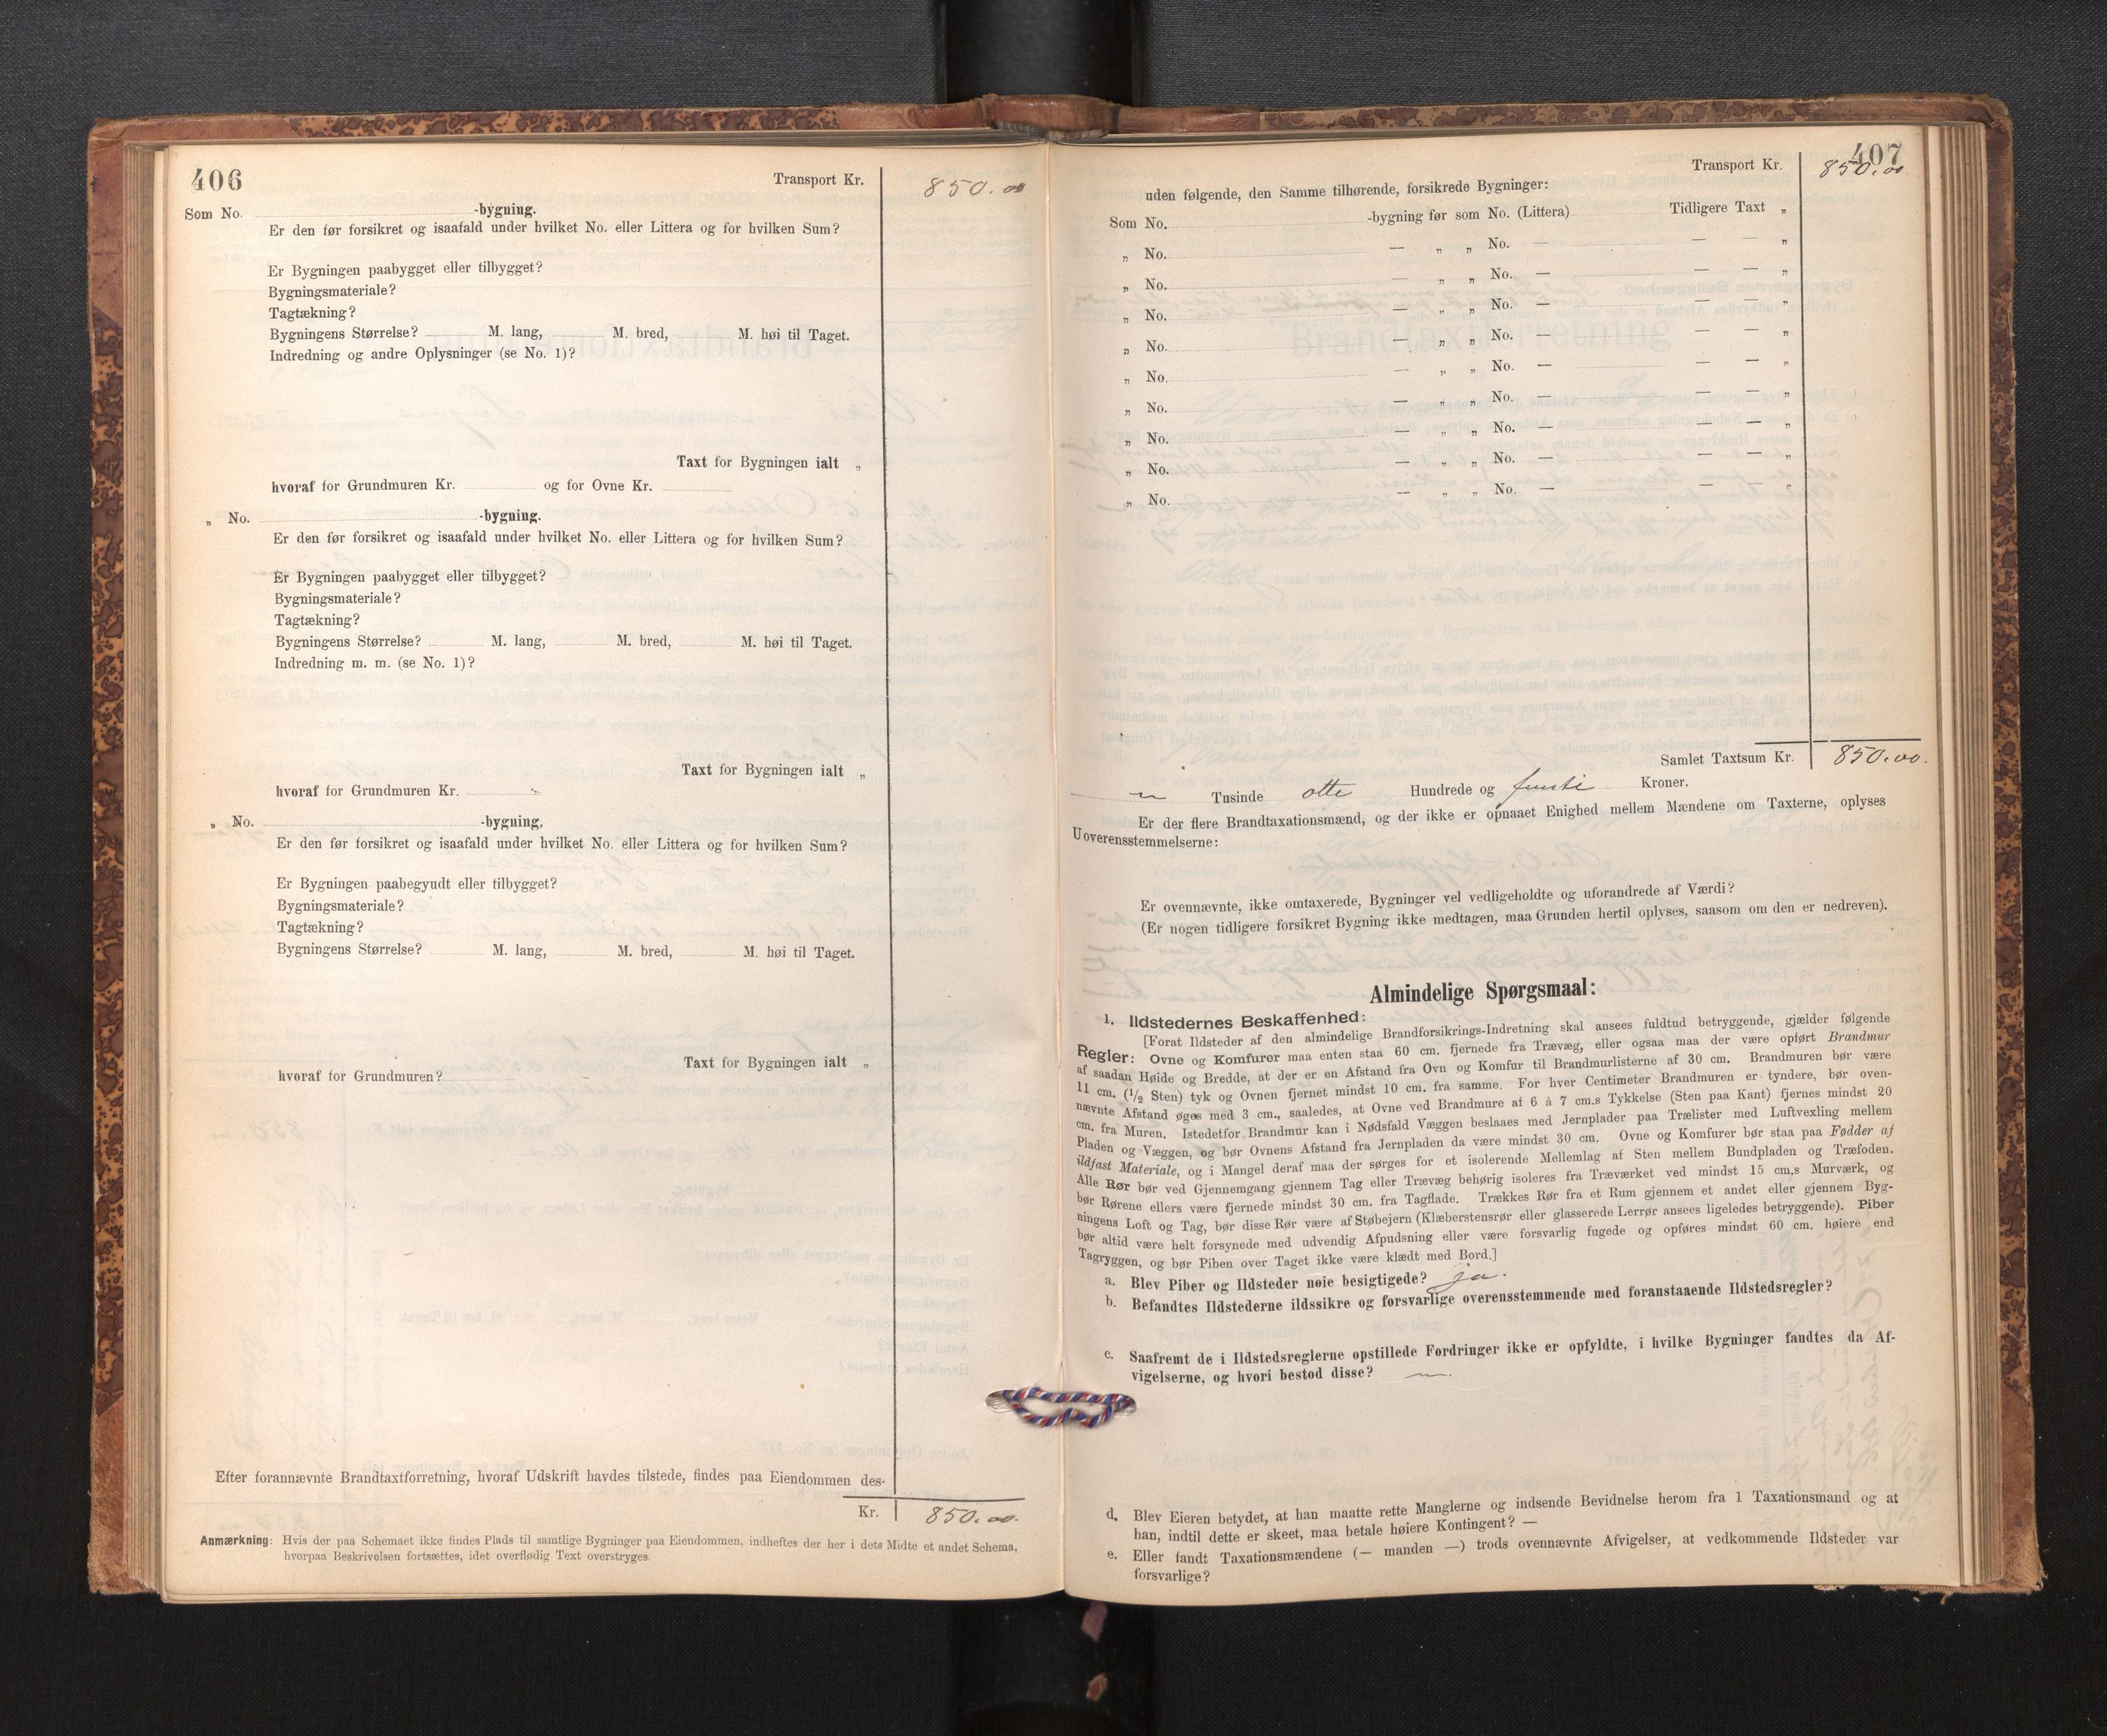 406
Transport Kr. 850.00
Som No. -bygning.
Er den før forsikret og isaafald under hvilket No. eller Littera og for hvilken Sum?
Er Bygningen paabygget eller tilbygget?
Bygningsmateriale?
Tagtækning?
Bygningens Størrelse? M. lang, M. bred, M. høi til Taget.
Indredning og andre Oplysninger (se No. 1)?
Taxt for Bygningen ialt „
hvoraf for Grundmuren Kr. og for Ovne Kr.
„ No. -bygning.
Er den før forsikret og isaafald under hvilket No. eller Littera og for hvilken Sum?
Er Bygningen paabygget eller tilbygget?
Bygningsmateriale?
Tagtækning?
Bygningens Størrelse? M. lang, M. bred, M. høi til Taget.
Indredning m. m. (se No. 1)?
Taxt for Bygningen ialt „
hvoraf for Grundmuren Kr.
„ No. -bygning,
Er den før forsikret og isaafald under hvilket No. eller Littera og for hvilken Sum?
Er Bygningen paabegyndt eller tilbygget?
Bygningsmateriale?
Tagtækning?
Bygningens Størrelse? M. lang, M. bred, M. høi til Taget.
Taxt for Bygningen ialt „
hvoraf for Grundmuren?
Efter forannævnte Brandtaxtforretning, hvoraf Udskrift havdes tilstede, findes paa Eiendommen des-
Kr. 850.00.
Anmærkning: Hvis der paa Schemaet ikke findes Plads til samtlige Bygninger paa Eiendommen, indheftes der her i dets Midte et andet Schema,
hvorpaa Beskrivelsen fortsættes, idet overflødig Text overstryges.
407
Transport Kr. 850.00.
uden følgende, den Samme tilhørende, forsikrede Bygninger:
Som No. -bygning før som No. (Littera) Tidligere Taxt „
„ No. — „ „ No. — — — „
„ No. — „ „ No. — — — „
„ No. — „ „ No. — — — „
„ No. — „ „ No. — — — „
„ No. — „ „ No. — — — „
„ No. — „ „ No. — — — „
„ No. — „ „ No. — — — „
„ No. — „ „ No. — — — „
„ No. — „ „ No. — — — „
Samlet Taxtsum Kr. 850.00.
Tusinde otte Hundrede og femti Kroner.
Er der flere Brandtaxationsmænd, og der ikke er opnaaet Enighed mellem Mændene om Taxterne, oplyses
Uoverensstemmelserne:
Er ovennævnte, ikke omtaxerede, Bygninger vel vedligeholdte og uforandrede af Værdi?
(Er nogen tidligere forsikret Bygning ikke medtagen, maa Grunden hertil oplyses, saasom om den er nedreven).
Almindelige Spørgsmaal:
1. Ildstedernes Beskaffenhed:
[Forat Ildsteder af den almindelige Brandforsikrings-Indretning skal ansees fuldtud betryggende, gjælder følgende
Regler: Ovne og Komfurer maa enten staa 60 cm. fjernede fra Trævæg, eller ogsaa maa der være opført Brandmur
af saadan Høide og Bredde, at der er en Afstand fra Ovn og Komfur til Brandmurlisterne af 30 cm. Brandmuren bør være
11 cm. (1/2 Sten) tyk og Ovnen fjernet mindst 10 cm. fra samme. For hver Centimeter Brandmuren er tyndere, bør oven-
nævnte Afstand øges med 3 cm., saaledes, at Ovne ved Brandmure af 6 à 7 cm.s Tykkelse (Sten paa Kant) fjernes mindst 20
cm. fra Muren. Istedetfor Brandmur kan i Nødsfald Væggen beslaaes med Jernplader paa Trælister med Luftvexling mellem
Pladen og Væggen, og bør Ovnens Afstand fra Jernpladen da være mindst 30 cm. Ovne og Komfurer bør staa paa Fødder af
ildfast Materiale, og i Mangel deraf maa der sørges for et isolerende Mellemlag af Sten mellem Bundpladen og Træfoden.
Alle Rør bør ved Gjennemgang gjennem Tag eller Trævæg behørig isoleres fra Træværket ved mindst 15 cm.s Murværk, og
bør Rørene ellers være fjernede mindst 30 cm. fra Tagflade. Trækkes Rør fra et Rum gjennem et andet eller gjennem Byg-
ningens Loft og Tag, bør disse Rør være af Støbejern (Klæberstensrør eller glasserede Lerrør ansees ligeledes betryggende). Piber
bør altid være helt forsynede med udvendig Afpudsning eller være forsvarlig fugede og opføres mindst 60 cm. høiere end
Tagryggen, og bør Piben over Taget ikke være klædt med Bord.]
a. Blev Piber og Ildsteder nøie besigtigede? ja.
b. Befandtes Ildstederne ildssikre og forsvarlige overensstemmende med foranstaaende Ildstedsregler?
c. Saafremt de i Ildstedsreglerne opstillede Fordringer ikke er opfyldte, i hvilke Bygninger fandtes da Af-
vigelserne, og hvori bestod disse?
d. Blev Eieren betydet, at han maatte rette Manglerne og indsende Bevidnelse herom fra 1 Taxationsmand og at
han, indtil dette er skeet, maa betale høiere Kontingent? —
e. Eller fandt Taxationsmændene (— manden —) trods ovennævnte Afvigelser, at vedkommende Ildsteder var
forsvarlige?